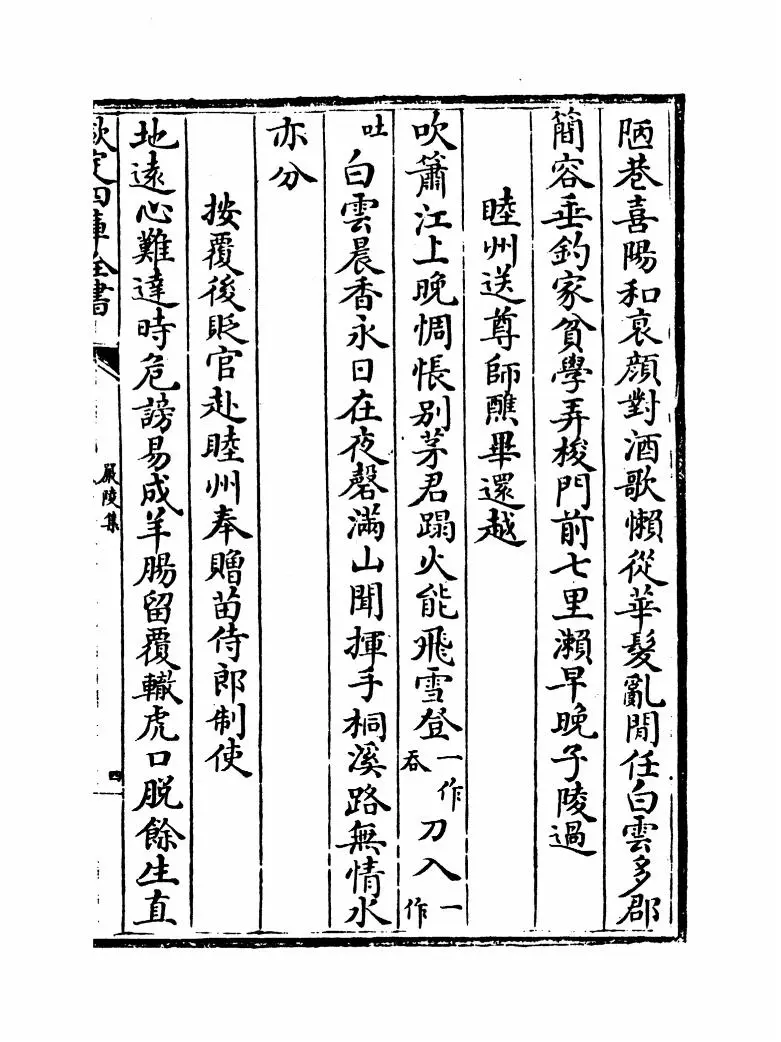 陋巷喜陽和衰顔對酒歌懶從華髮亂閒任白雲多郡
簡容垂釣家貧學弄梭門前七里瀨早晚子陵過
睦州送尊師醮畢還越
吹簫江上晚惆悵别茅君蹋火能飛雪登一作吞刀入一作
吐白雲晨香永日在夜磬滿山聞揮手桐溪路無情水
亦分
按覆後貶官赴睦州奉贈苗侍郎制使
地遠心難達時危謗易成羊腸留覆轍虎口脱餘生直
欽定四庫全書
嚴陵集
四